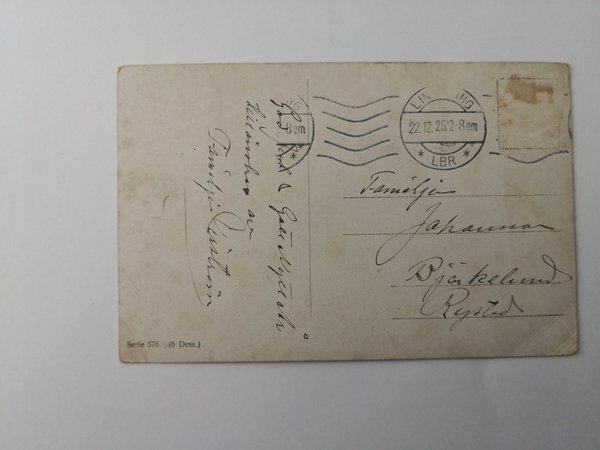 God Jul & Gott Nytt år
tillönskas av
Familjen
8em
22.12.25.2-8em
* LBR *
Familjen
Johansson
Björkelund
Rystad
Serie 576. (6 Dess.)